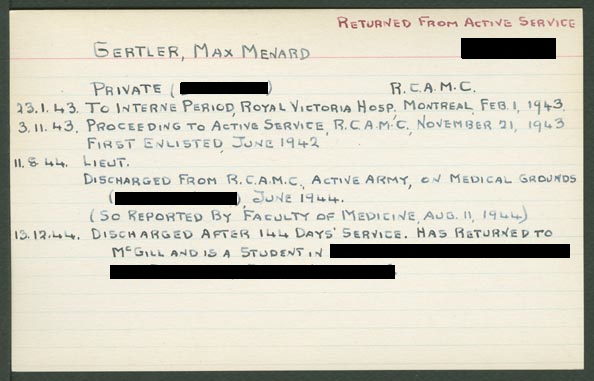 RETURNED FROM ACTIVE SERVICE
GERTLER, MAX MENARD
PRIVATE ( ) R.C.A.M.C.
23.1.43. TO INTERNE PERIOD, ROYAL VICTORIA HOSP. MONTREAL, FEB. 1, 1943.
3.11.43. PROCEEDING TO ACTIVE SERVICE, R.C.A.M.C., NOVEMBER 21, 1943
FIRST ENLISTED, JUNE 1942
11.8.44. LIEUT.
DISCHARGED FROM R.C.A.M.C., ACTIVE ARMY, ON MEDICAL GROUNDS
( ), JUNE 1944.
(SO REPORTED BY FACULTY OF MEDICINE, AUG. 11, 1944)
13.12.44. DISCHARGED AFTER 144 DAYS' SERVICE. HAS RETURNED TO
MCGILL AND IS A STUDENT IN